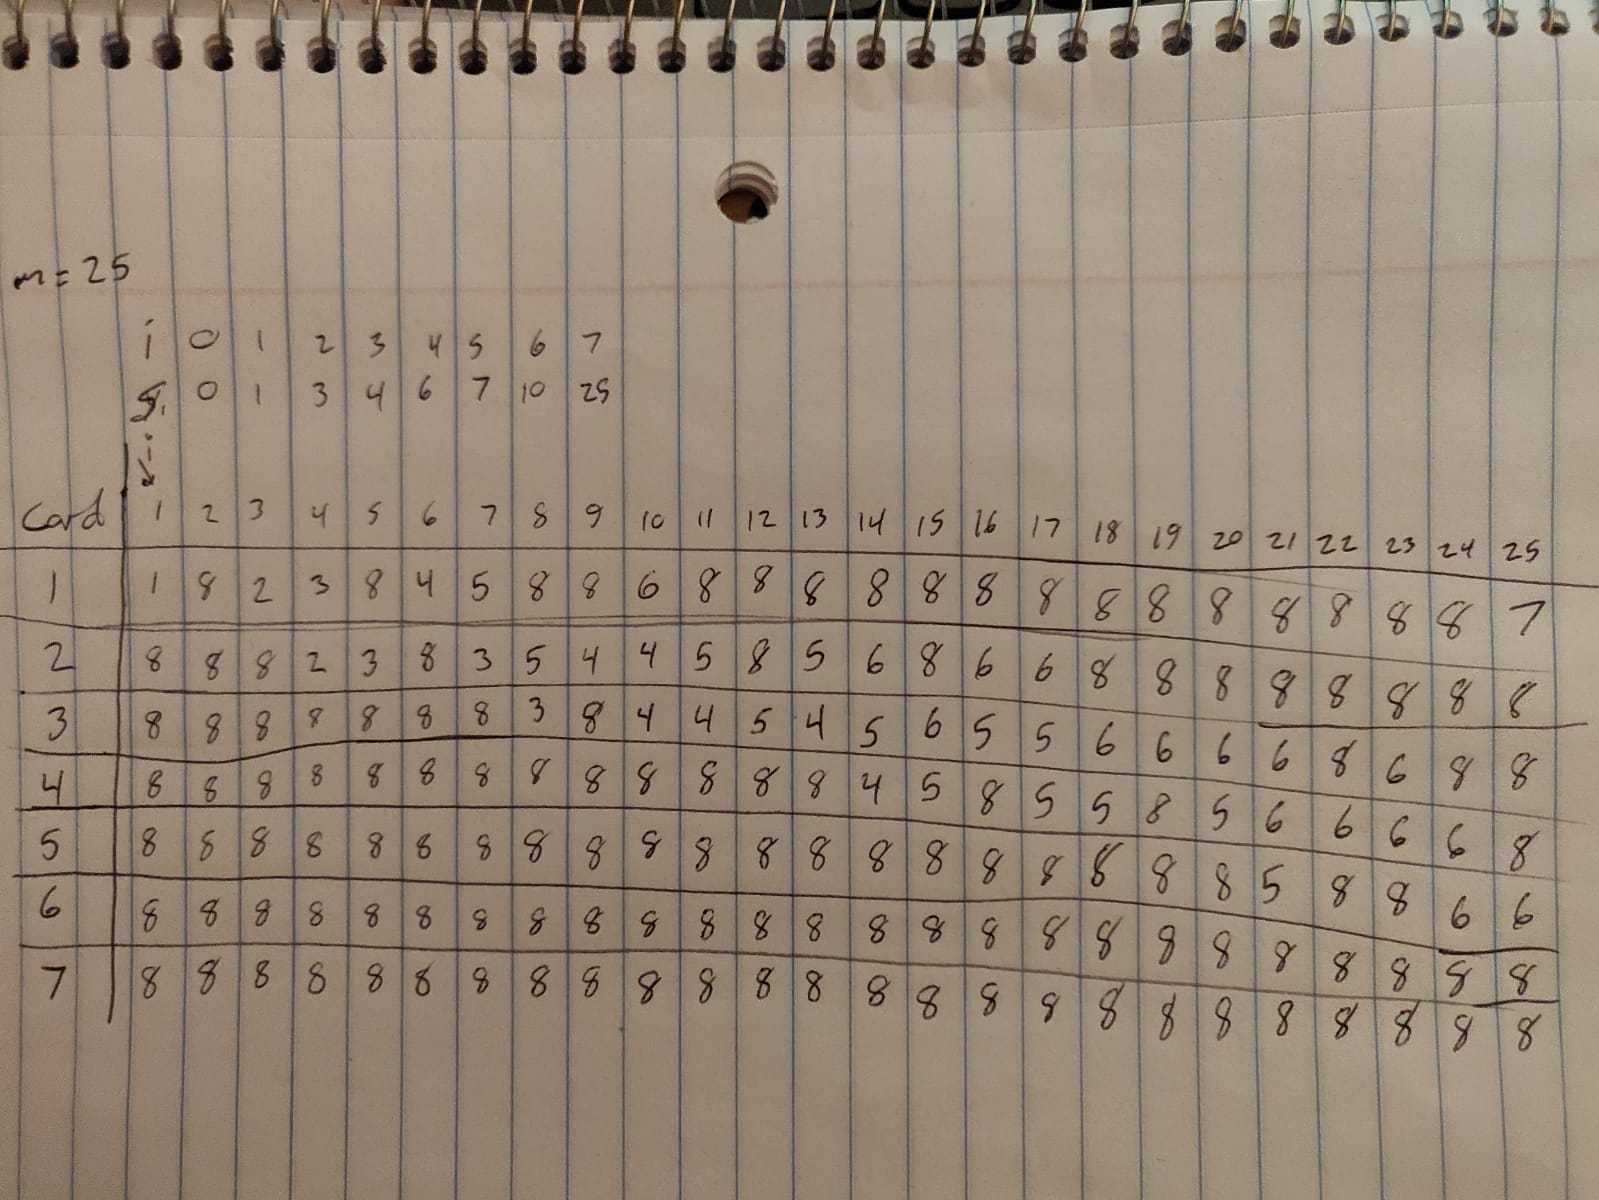 m = 25
i 0 1 2 3 4 5 6 7
S. 0 1 3 4 6 7 10 25
i
Card 1 2 3 4 5 6 7 8 9 10 11 12 13 14 15 16 17 18 19 20 21 22 23 24 25
1 1 8 2 3 8 4 5 8 8 6 8 8 8 8 8 8 8 8 8 8 8 8 8 8 7
2 8 8 8 2 3 8 3 5 4 4 5 8 5 6 8 6 6 8 8 8 8 8 8 8 8
3 8 8 8 8 8 8 8 3 8 4 4 5 4 5 6 5 5 6 6 6 6 8 6 8 8
4 8 8 8 8 8 8 8 8 8 8 8 8 8 4 5 8 5 5 8 5 6 6 6 6 8
5 8 8 8 8 8 8 8 8 8 8 8 8 8 8 8 8 8 8 8 8 5 8 8 6 6
6 8 8 8 8 8 8 8 8 8 8 8 8 8 8 8 8 8 8 8 8 8 8 8 8 8
7 8 8 8 8 8 8 8 8 8 8 8 8 8 8 8 8 8 8 8 8 8 8 8 8 8